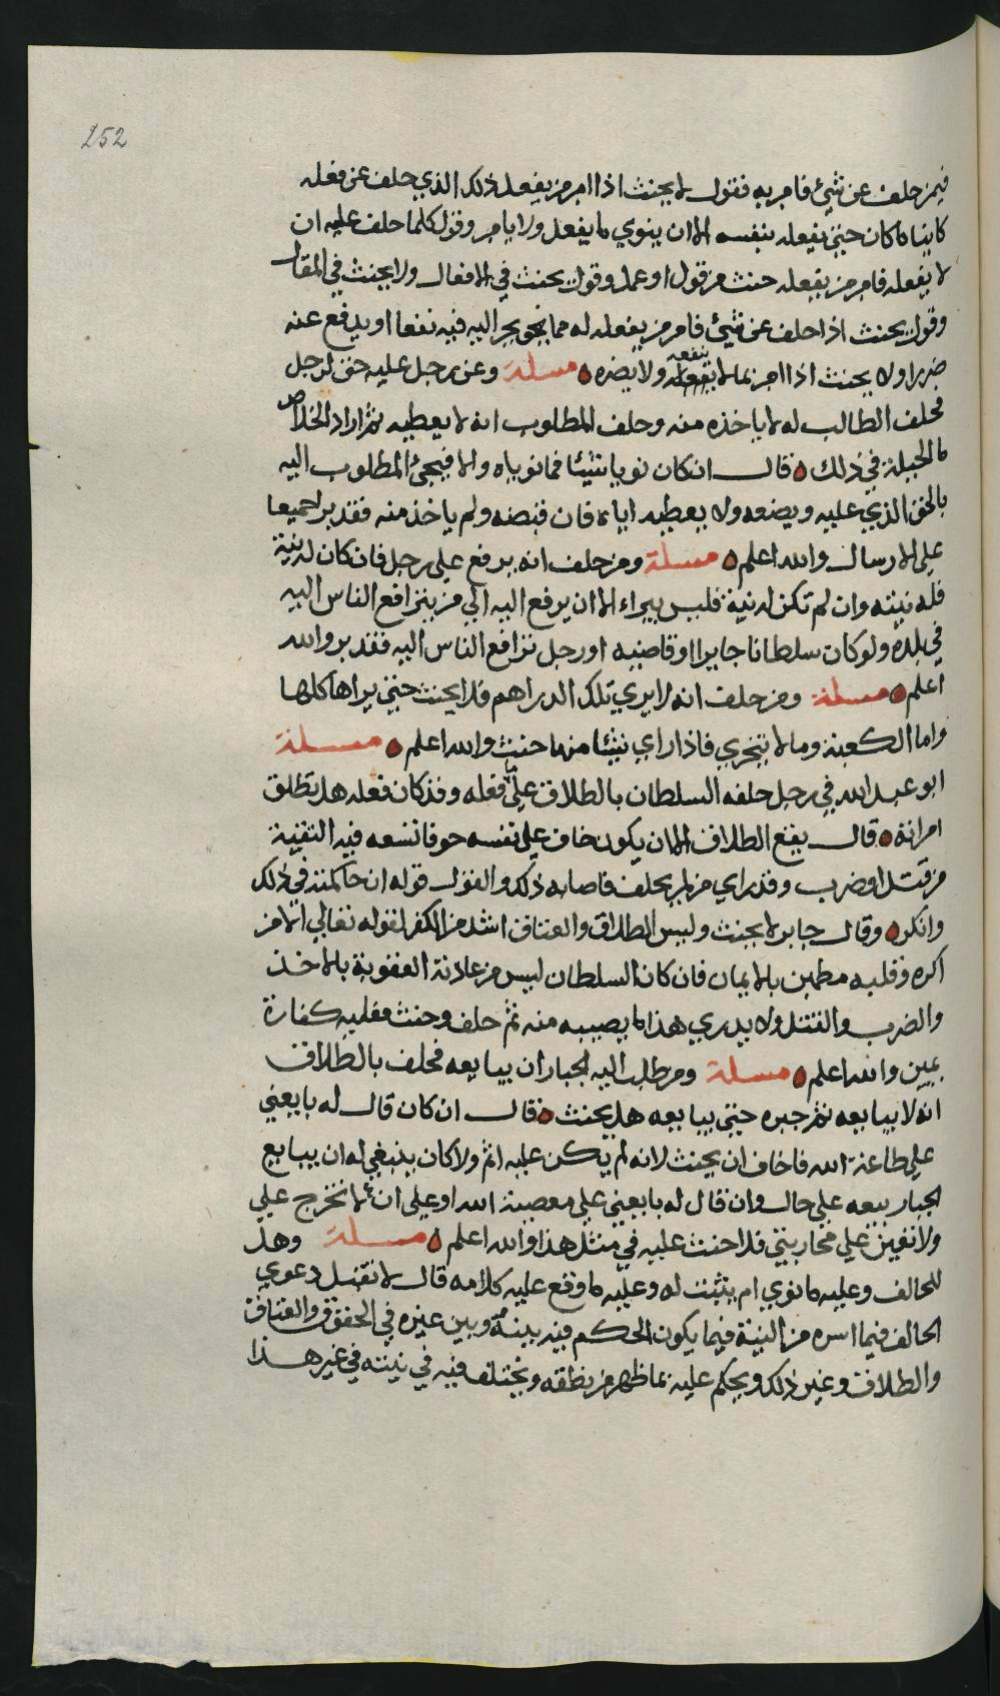 252
فيمن حلف عن شيء فامر به فقول لا يحنث اذا امر من يفعل ذلك الذي حلف عن فعله
كاينا ما كان حتى يفعله بنفسه الا ان ينوي لا يفعل ولا يامر وقول كلما حلف عليه ان
لا يفعله فامر من يفعله حنث من قول او عمل وقول يحنث في الافعال ولا يحنث في المقال
وقول يحنث اذا حلف عن شيء فامر من يفعله له مما يجر اليه فيه نفعا او يدفع عنه
ضررا ولا يحنث اذا امر بما لا ينفعه ولا يضره مسلة وعن رجل عليه حق لرجل
فحلف الطالب له لا ياخذه منه وحلف المطلوب انه لا يعطيه ثم اراد الخلاص
ما الحيلة في ذلك قال ان كان نويا شيئا فما نوياه والا فيجئ المطلوب اليه
بالحق الذي عليه ويضعه ولا يعطيه اياه فان قبضه ولم ياخذ منه فقد برا جميعا
على الارسال والله اعلم مسلة ومن حلف انه يرفع على رجل فان كان له نية
فله نيته وان لم تكن له نية فليس يبراء الا ان يرفع اليه الي من يترافع الناس اليه
في بلده ولو كان سلطانا جايرا او قاضيه او رجل ترافع الناس اليه فقد بر والله
اعلم مسلة ومن حلف انه لا يري تلك الدراهم فلا يحنث حتى يراها كلها
واما الكعبة وما لا يتجزي فاذا راي شيئا منها حنث والله اعلم مسلة
ابو عبد الله في رجل حلفه السلطان بالطلاق على ما فعله وقد كان فعله هل تطلق
امراته قال يقع الطلاق الا ان يكون خاف على نفسه خوفا تسعه فيه التقية
من قتل او ضرب وقد راي من لم يحلف فاصابه ذلك والقول قوله ان حاكمته في ذلك
وانكر وقال جابر لا يحنث وليس الطلاق والعتاق اشد من الكفر لقوله تعالي الا من
اكره وقلبه مطمين بالايمان فان كان السلطان ليس من عادته العقوبة بالاخذ
والضرب والقتل ولا يدري هذا ما يصيبه منه ثم حلف وحنث فعليه كفارة
يمين والله اعلم مسلة ومن طلب اليه الجبار ان يبايعه فحلف بالطلاق
انه لا يبايعه ثم جبره حتى يبايعه هل يحنث قال ان كان قال له بايعني
على طاعة الله فاخاف ان يحنث لانه لم يكن عليه اثم ولا كان ينبغي له ان يبايع
الجبار بيعه على حال وان قال له بايعني على معصية الله او على ان لا تخرج علي
ولا تعين على محاربتي فلا حنث عليه في مثل هذا والله اعلم مسلة وهل
للحالف وعليه ما نوي ام يثبت له وعليه ما وقع عليه كلامه قال لا تقبل دعوي
الحالف فيما اسره من النية فيما يكون الحكم فيه بينه وبين غيره في الحقوق والعتاق
والطلاق وغير ذلك ويحكم عليه بما ظهر من نطقه ويختلف فيه في نيته في غير هذا